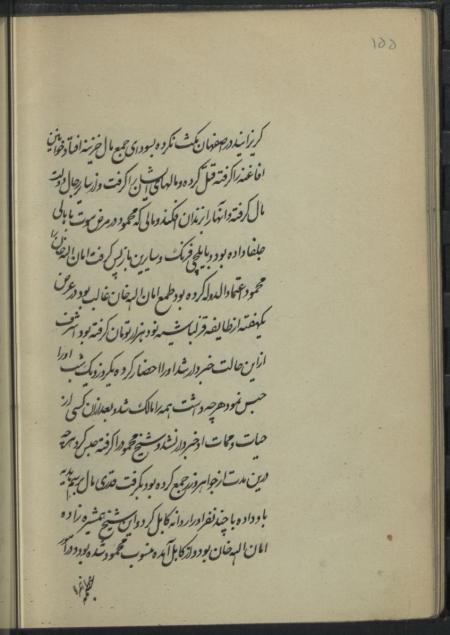 ۱۵۵
کریزانید در اصفهان مکث نکرده بسودای جمع مال خزینه افتاد خوانین
افاغنه را گرفته قتل کرده و مالهای ایشان را گرفت و از سایر رجال دولت
مال گرفته و آنها را بزندان افکند و مالی که محمود در مرض موت با اهالی
جلفا داده بود و با ایلچی فرنک و سایرین باز پس گرفت امان الله خان را
محمود اعتماد الدوله کرده بود طمع امان الله خان غالب بود در عرض
یکهفته از طایفه قزلباشیه نود هزار تومان گرفته بود اشرف
ازین حالت خبردار شد او را احضار کرده یکروز و یک شب او را
حبس نمود هرچه داشت همه را مالک شد و بعد از آن کسی از
حیات و ممات او خبردار نشد و شیخ محمود را گرفته حبس کرد هرچه
درین مدت از جواهر و زر جمع کرده بود بگرفت قدری مال برسم هدیه
باو داده با چند نفر او را روانه کابل کرد و این شیخ همشیره زاده
امان الله خان بود و از کابل آمده منسوب محمود شده بود و در آخر